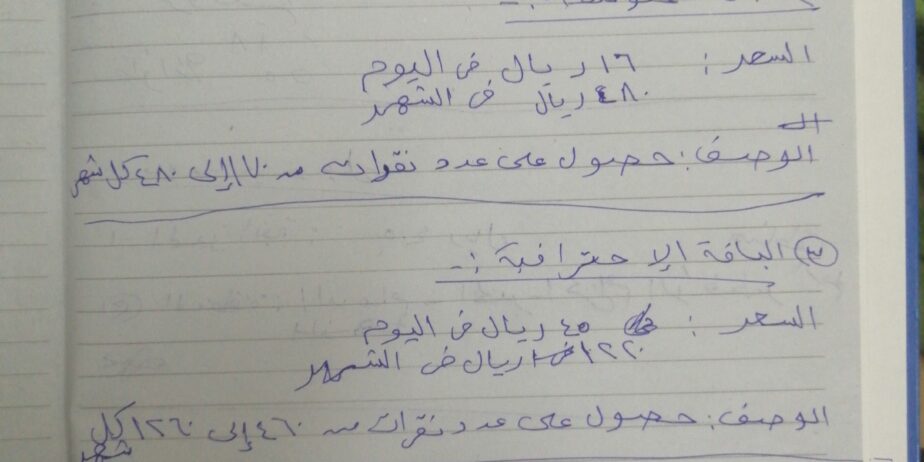 السعر : ١٦ ريال فى اليوم
٤٨٠ ريال فى الشهر
الوصف : حصول على عدد نقرات من ١٧٠ إلى ٤٨٠ كل شهر
٣ الباقة الإحترافية :-
السعر : ٤٥ ريال فى اليوم
ريال فى الشهر
الوصف : حصول على عدد نقرات من ٤٦٠ إلى ١٢٦٠ كل
شهر